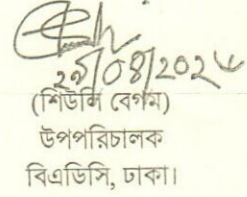 ২৯/০৪/২০২৬
(শিউলি বেগম)
উপপরিচালক
বিএডিসি, ঢাকা।